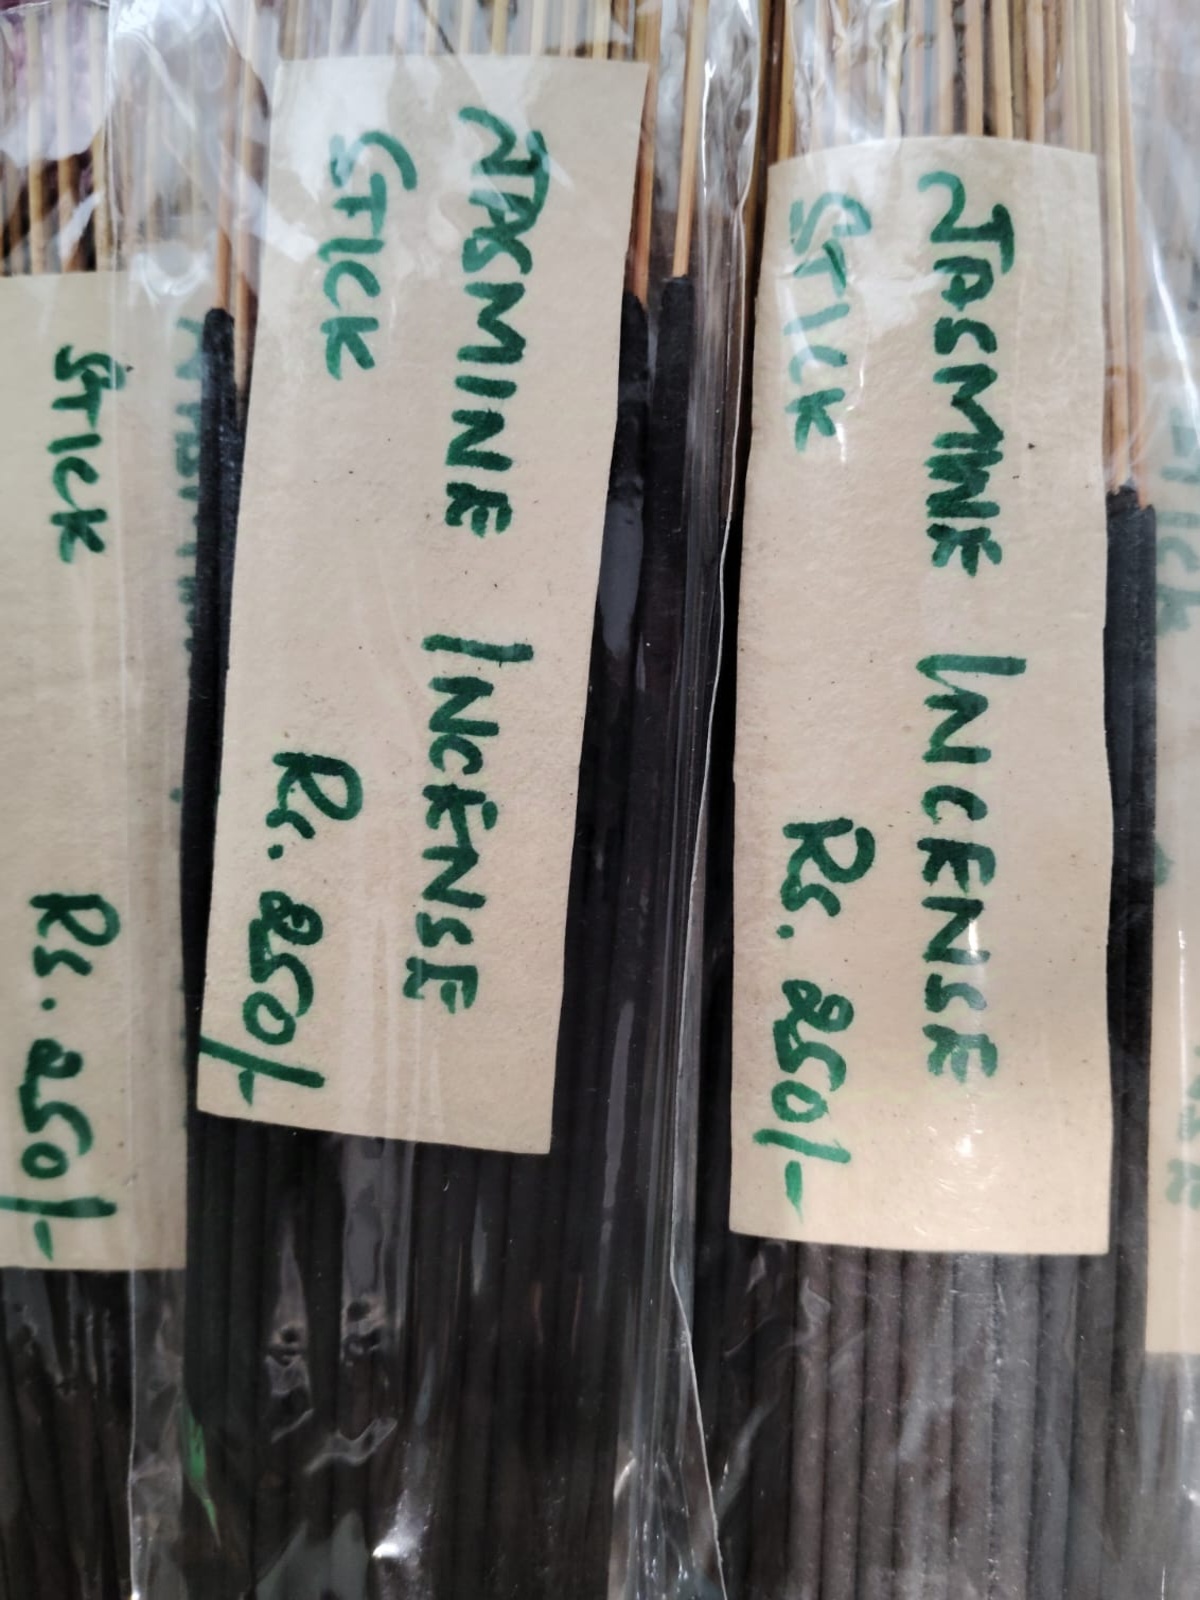 STICK
Rs. 250/-
JASMINE INCENSE
STICK
Rs. 250/-
JASMINE INCENSE
STICK
Rs. 250/-